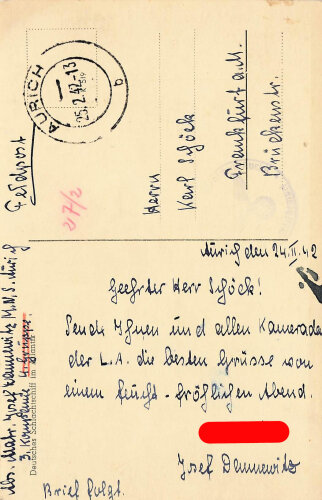 Feldpost
AURICH
25.2.42-13
b
217/2
Herrn
Karl Schöck
Frankfurt a.M.
Brückenstr.
Aurich den 24.II.42
Geehrter Herr Schöck!
Sende Ihnen und allen Kamerade
der L.A. die besten Grüsse von
einem feucht-fröhlichen Abend.
Josef Dannewitz
Brief folgt.
Abs. Matr. Josef Dannewitz M.N.S. Aurich
3. Kompanie
Deutsches Schlachtschiff im